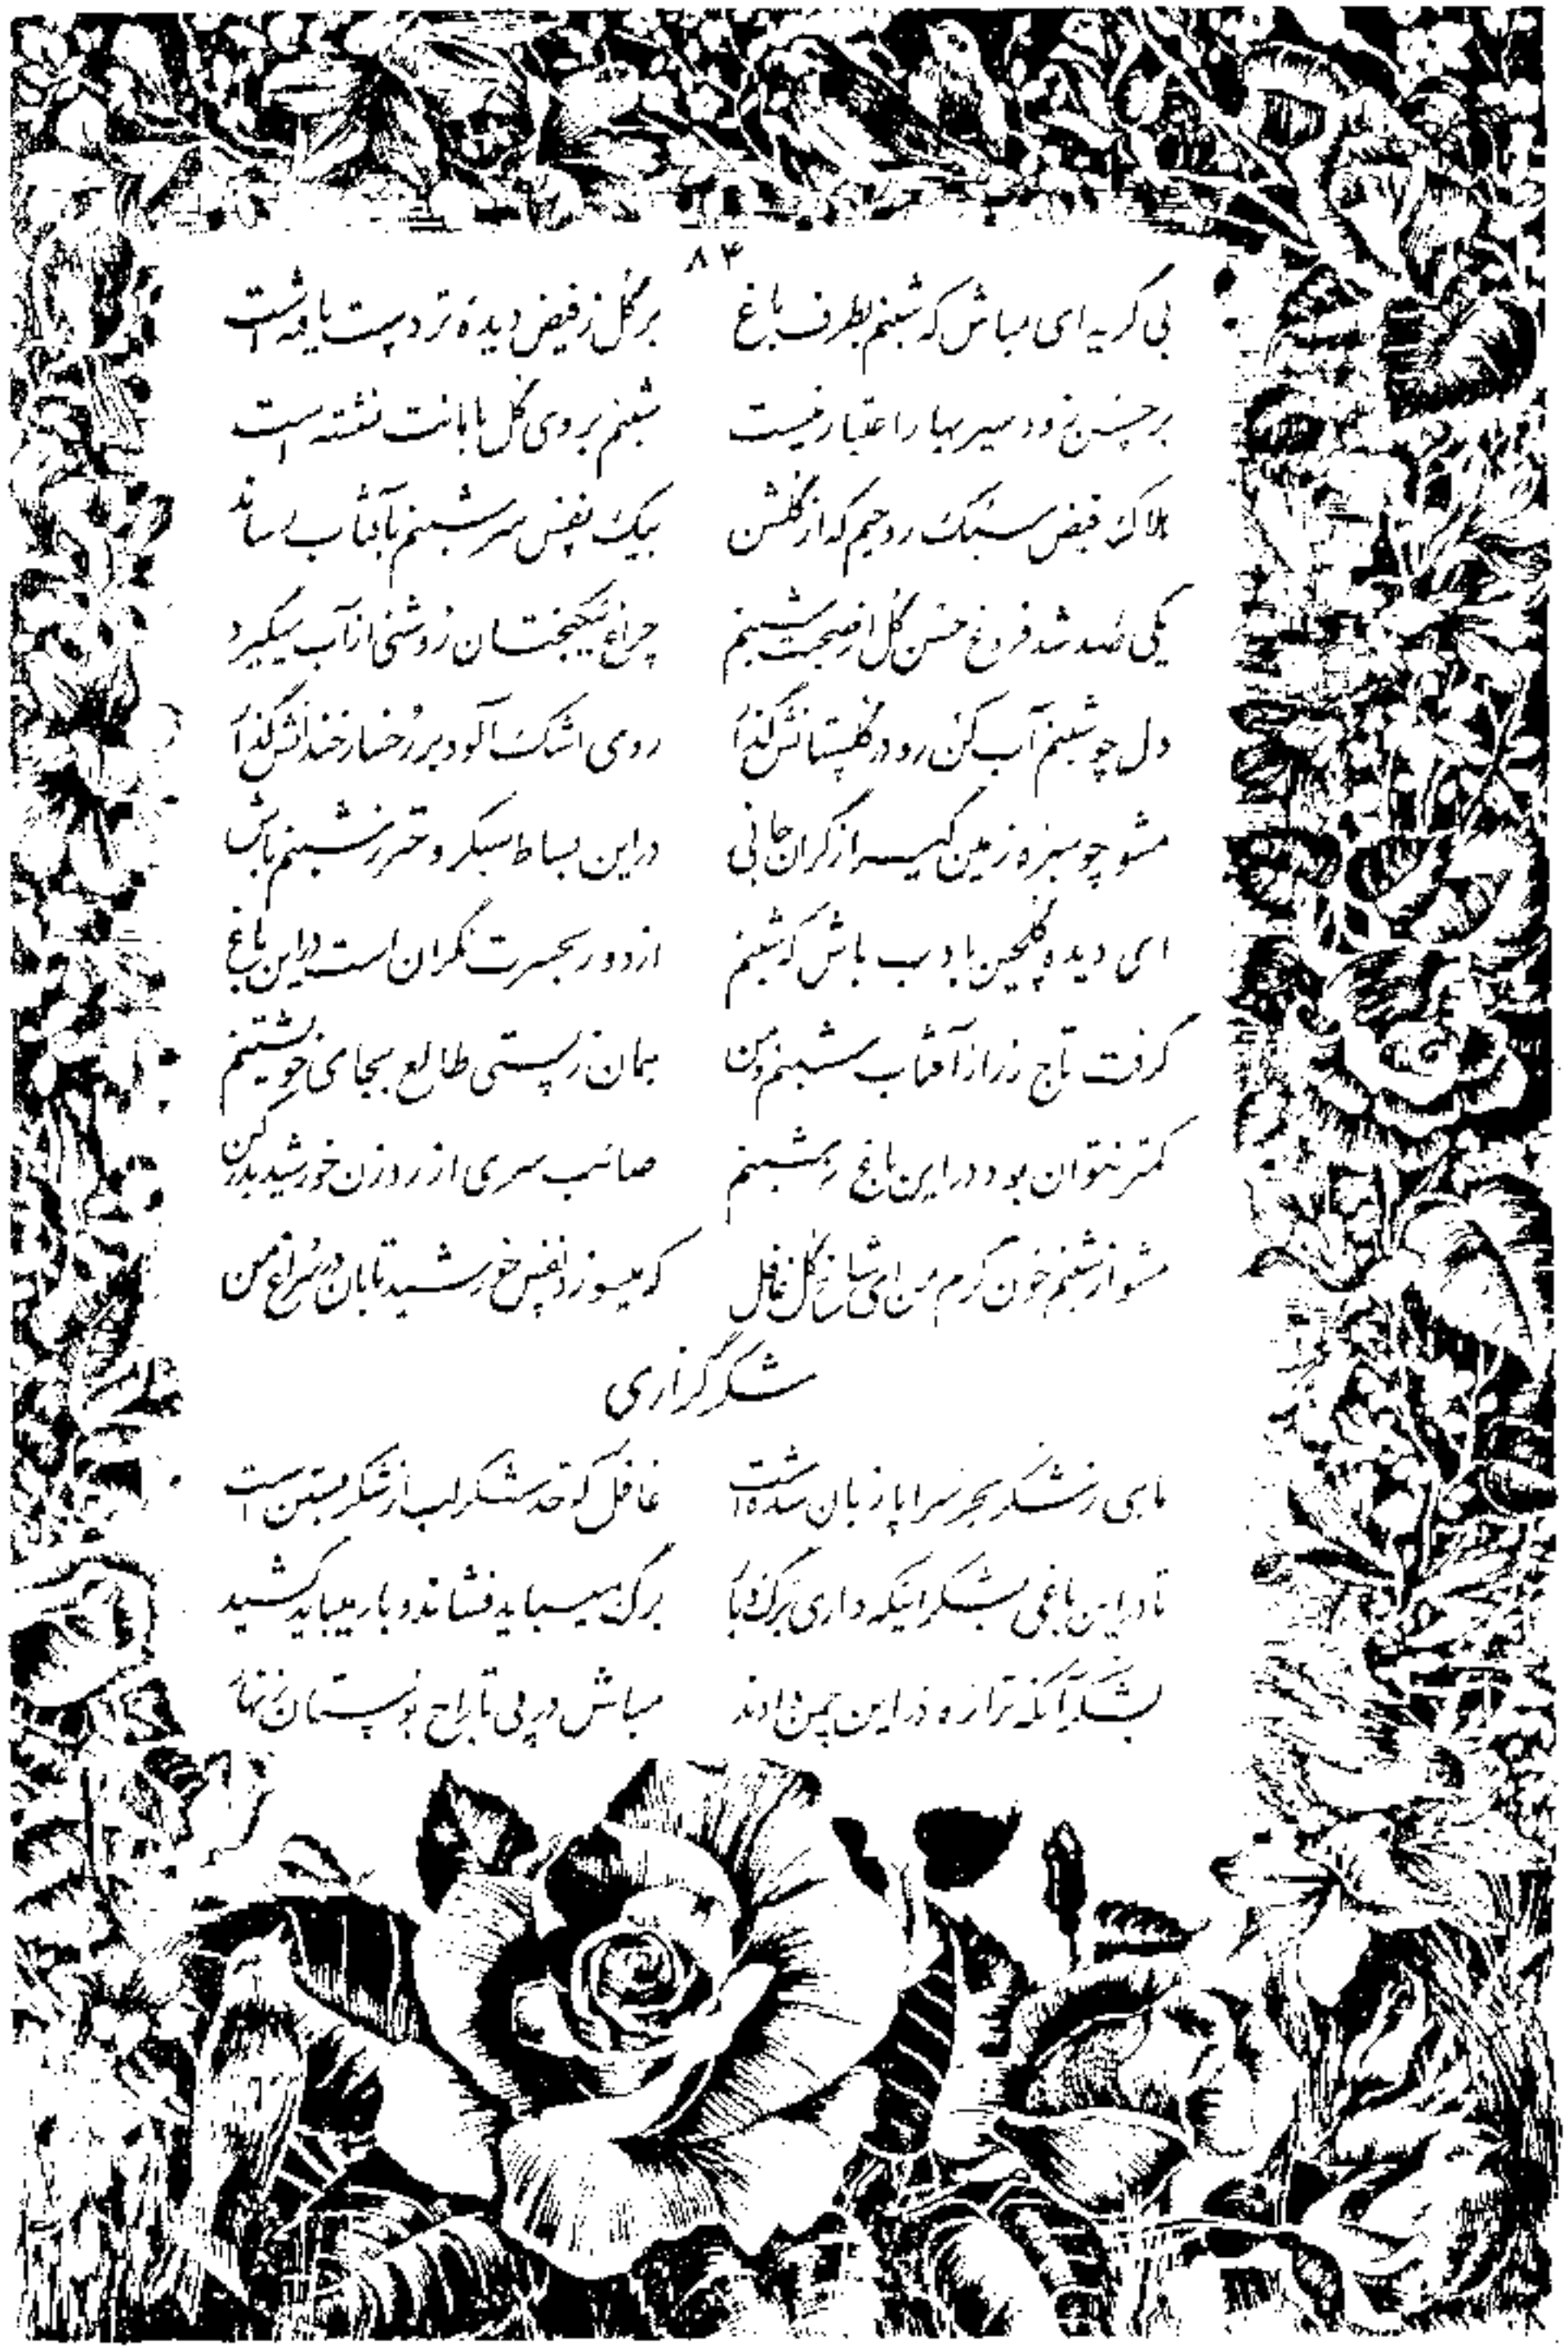 ۸۴
بی گریه ای مباش که شبنم بطرف باغ    بر گل ز فیض دیدهٔ تر دست یافته است
بر چیدن زود سیر بهار اعتبار نیست    شبنم بروی گل بامانت نشسته است
هلاک فیض سبک روحیم که از گلشن    بیک نفس سر شبنم بآفتاب رساند
یکی صد شد فروغ حسن گل از صحبت شبنم    چراغ نیکبختان روشنی از آب میگیرد
دل چو شبنم آب کن رو در گلستانش گذار    روی اشک آلود بر رخسار خندانش گذار
مشو چو سبزه زمین گیر از گران جانی    در این بساط سبکروحتر ز شبنم باش
ای دیده گلچین بادب باش که شبنم    از دور بحسرت نگران است در این باغ
گرفت تاج زر از آفتاب شبنم و من    همان ز پستی طالع بجای خویشتنم
کمتر نتوان بود در این باغ ز شبنم    صائب سری از روزن خورشید بدر کن
مشو از شبنم خون گرم من ای شاخ گل غافل    که میسوزد نفس خورشید تابان در سراغ من
شکرگزاری
ماهی ز شکر بحر سراپا زبان شده است    غافل که قد شکر لب از شکر بستن است
تا در این باغی بشکر اینکه داری برگ و بار    برگ میباید فشاند و بار میباید کشید
بشکر آنکه ترا ره در این چمن دادند    مباش در پی تاراج بوستان زنهار